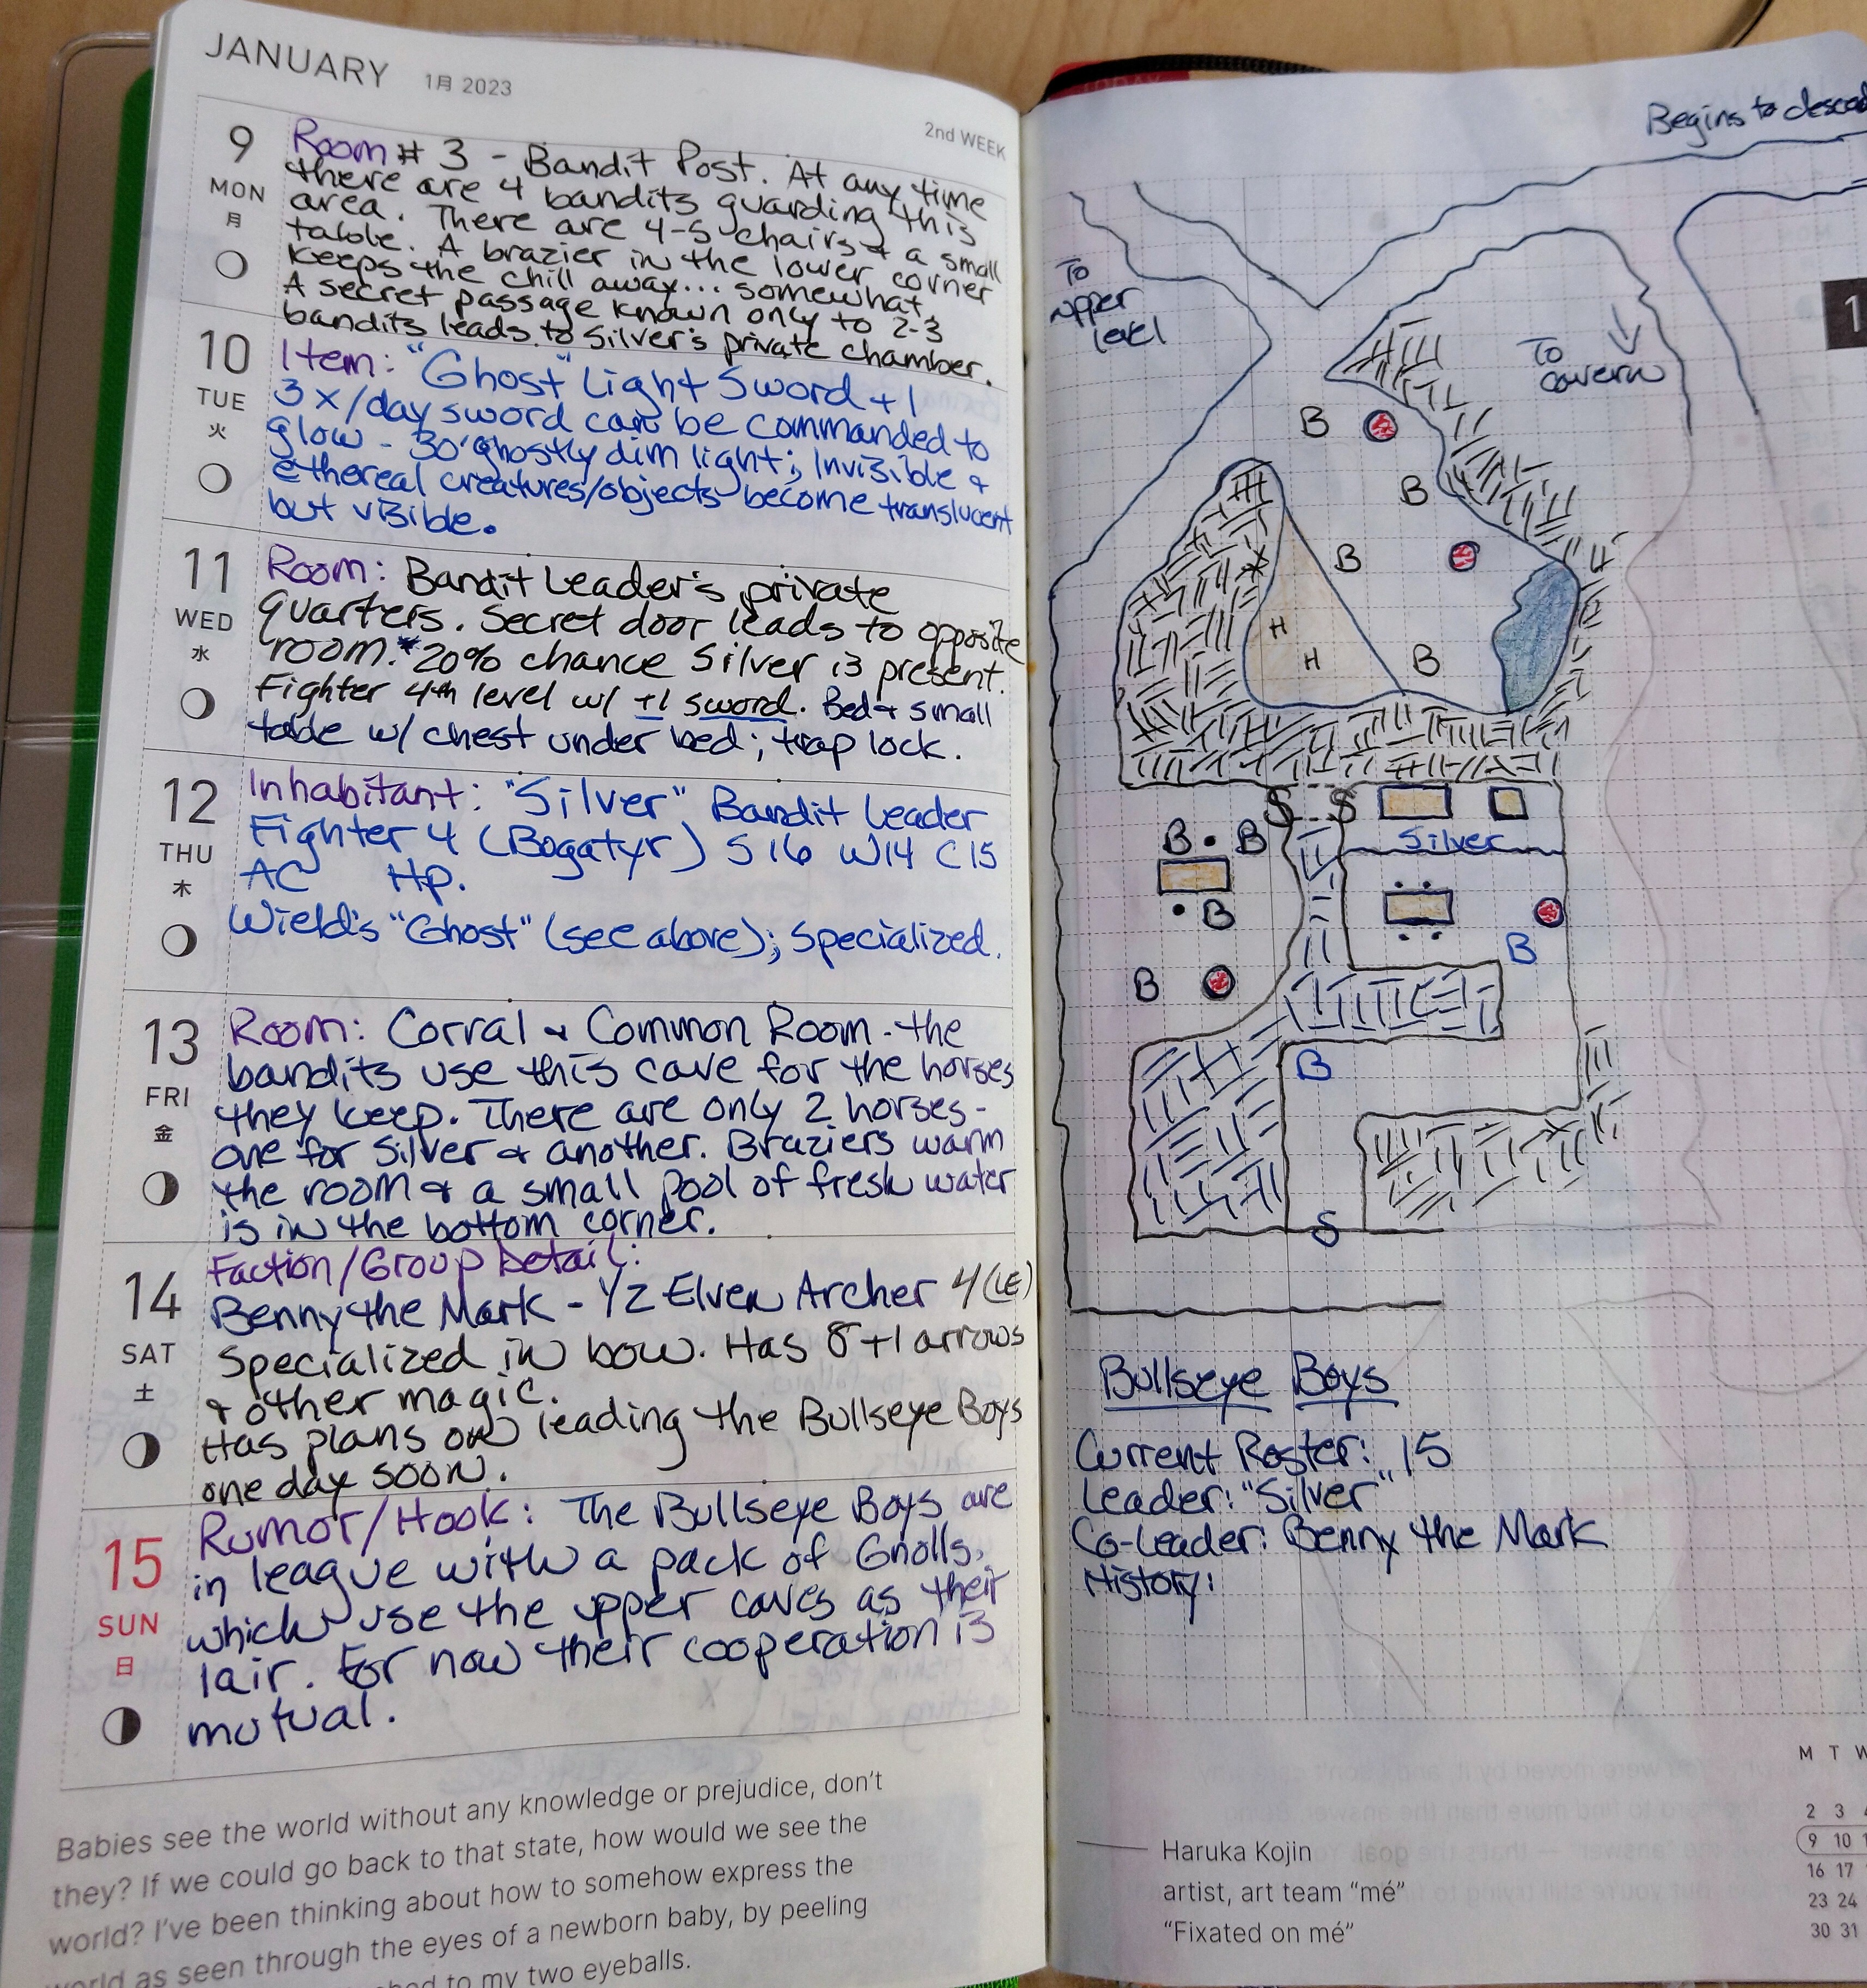 JANUARY 1月 2023
2nd WEEK
9
MON
月
Room # 3 - Bandit Post. At any time
there are 4 bandits guarding this
area. There are 4-5 chairs & a small
table. A brazier in the lower corner
keeps the chill away... somewhat.
A secret passage known only to 2-3
bandits leads to Silver's private chamber.
10
TUE
火
Item: "Ghost" Light Sword +1
3x/day sword can be commanded to
glow - 30' ghostly dim light; Invisible &
ethereal creatures/objects become translucent
but visible.
11
WED
水
Room: Bandit Leader's private
quarters. Secret door leads to opposite
room. *20% chance Silver is present.
Fighter 4th level w/ +1 sword. Bed & small
table w/ chest under bed; trap lock.
12
THU
木
Inhabitant: "Silver" Bandit Leader
Fighter 4 (Bogatyr) S16 W14 C15
AC Hp.
Wield's "Ghost" (see above); Specialized.
13
FRI
金
Room: Corral & Common Room - the
bandits use this cave for the horses
they keep. There are only 2 horses -
one for Silver & another. Braziers warm
the room & a small pool of fresh water
is in the bottom corner.
14
SAT
土
Faction/Group Detail:
Benny the Mark - 1/2 Elven Archer 4 (LE)
Specialized in bow. Has 8 +1 arrows
& other magic.
Has plans on leading the Bullseye Boys
one day soon.
15
SUN
日
Rumor/Hook: The Bullseye Boys are
in league with a pack of Gnolls,
which use the upper caves as their
lair. For now their cooperation is
mutual.
Babies see the world without any knowledge or prejudice, don't
they? If we could go back to that state, how would we see the
world? I've been thinking about how to somehow express the
world as seen through the eyes of a newborn baby, by peeling
to my two eyeballs.
Begins to descend
To
upper
level
To
cavern
1
B
B
B
H
H
B
S S
Silver
B B
B
B
B
B
S
Bullseye Boys
Current Roster: 15
Leader: "Silver"
Co-Leader: Benny the Mark
History:
Haruka Kojin
artist, art team “mé”
“Fixated on mé”
M T W
2 3 4
9 10 1
16 17
23 24
30 31